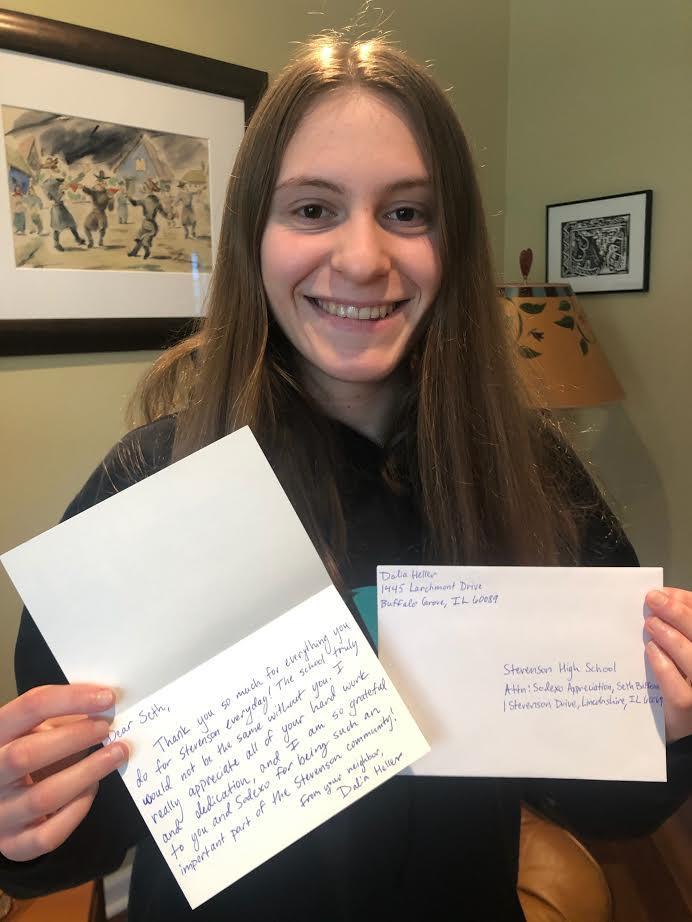 Dear Seth,
Thank you so much for everything you
do for Stevenson everyday! The school truly
would not be the same without you. I
really appreciate all of your hard work
and dedication, and I am so grateful
to you and Sodexo for being such an
important part of the Stevenson community.
From your neighbor,
Dalia Heller
Dalia Heller
1445 Larchmont Drive
Buffalo Grove, IL 60089
Stevenson High School
Attn: Sodexo Appreciation, Seth
1 Stevenson Drive, Lincolnshire, IL